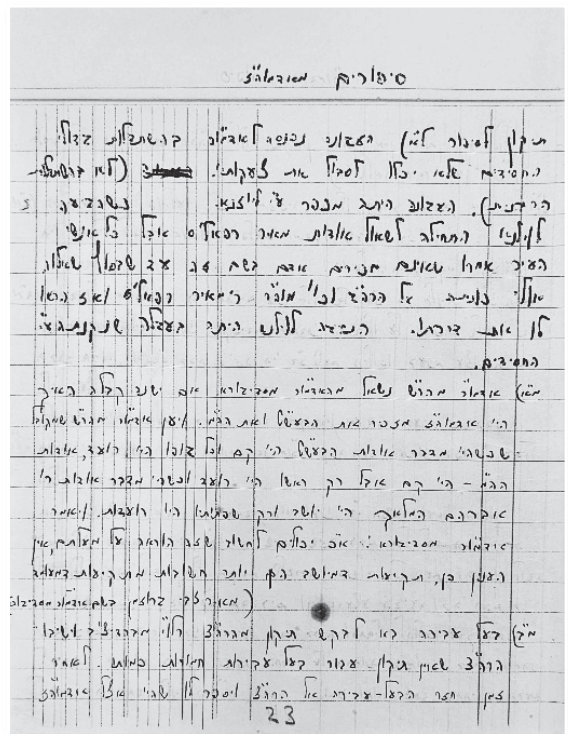 סיפורים מאדמוה"ז
תיקון לסיפור ל"א) העגונה נכנסה לאדמו"ר בהשתדלות גדולי
החסידים שלא יכלו לסבול את צעקותי'. (לא בהשתדלות
הרבנית). העגונה היתה מכפר ע"י ליוזנא. כשהגיעה
לוילנא התחילה לשאול אודות מאיר רפאל'ס אבל כל אנשי
העיר אמרו שאינם מכירים אדם בשם זה עד שבסוף שאלוה
אולי כוונתה על הרה"ג וכו' מוה"ר ר' מאיר רפאל'ס ואז הראו
לו את דירתו. הנסיעה לוילנא היתה בעגלה שנקנתה ע"י
החסידים.
מ"א) אדמו"ר מהר"ש נשאל מהאדמו"ר מסביבורא אם ישנה קבלה האיך
הי' אדמוה"ז מזכיר את הבעש"ט ואת הה"מ. ויען אדמו"ר מהר"ש שמקובל
שכשהי' מדבר אודות הבעש"ט הי' קם וכל גופו הי' רועד, אודות
הה"מ – הי' קם אבל רק ראשו הי' רועד וכשהי' מדבר אודות ר'
אברהם המלאך הי' יושב ורק שפתיו היו רועדות. ויאמר
אדמו"ר מסביבורא: א"כ יכולים לחשוב שזה הוראה על מעלתם, אין
הענין כן, תקיעות דמיושב הם יותר חשובות מתקיעות דמעומד
(מאיר צבי ברוזמן בשם אדמו"ר מסביבורא)
מ"ב) בעל עבירה בא לבקש תיקון מהרה"צ רלו"י מברדיצ'ב וישיבו
הרה"צ שאין תיקון עבור בעל עבירות חמורות כמותו. לאחר
זמן חזר הבעל-עבירה אל הרה"צ ויספר לו שהי' אצל אדמוה"ז
23